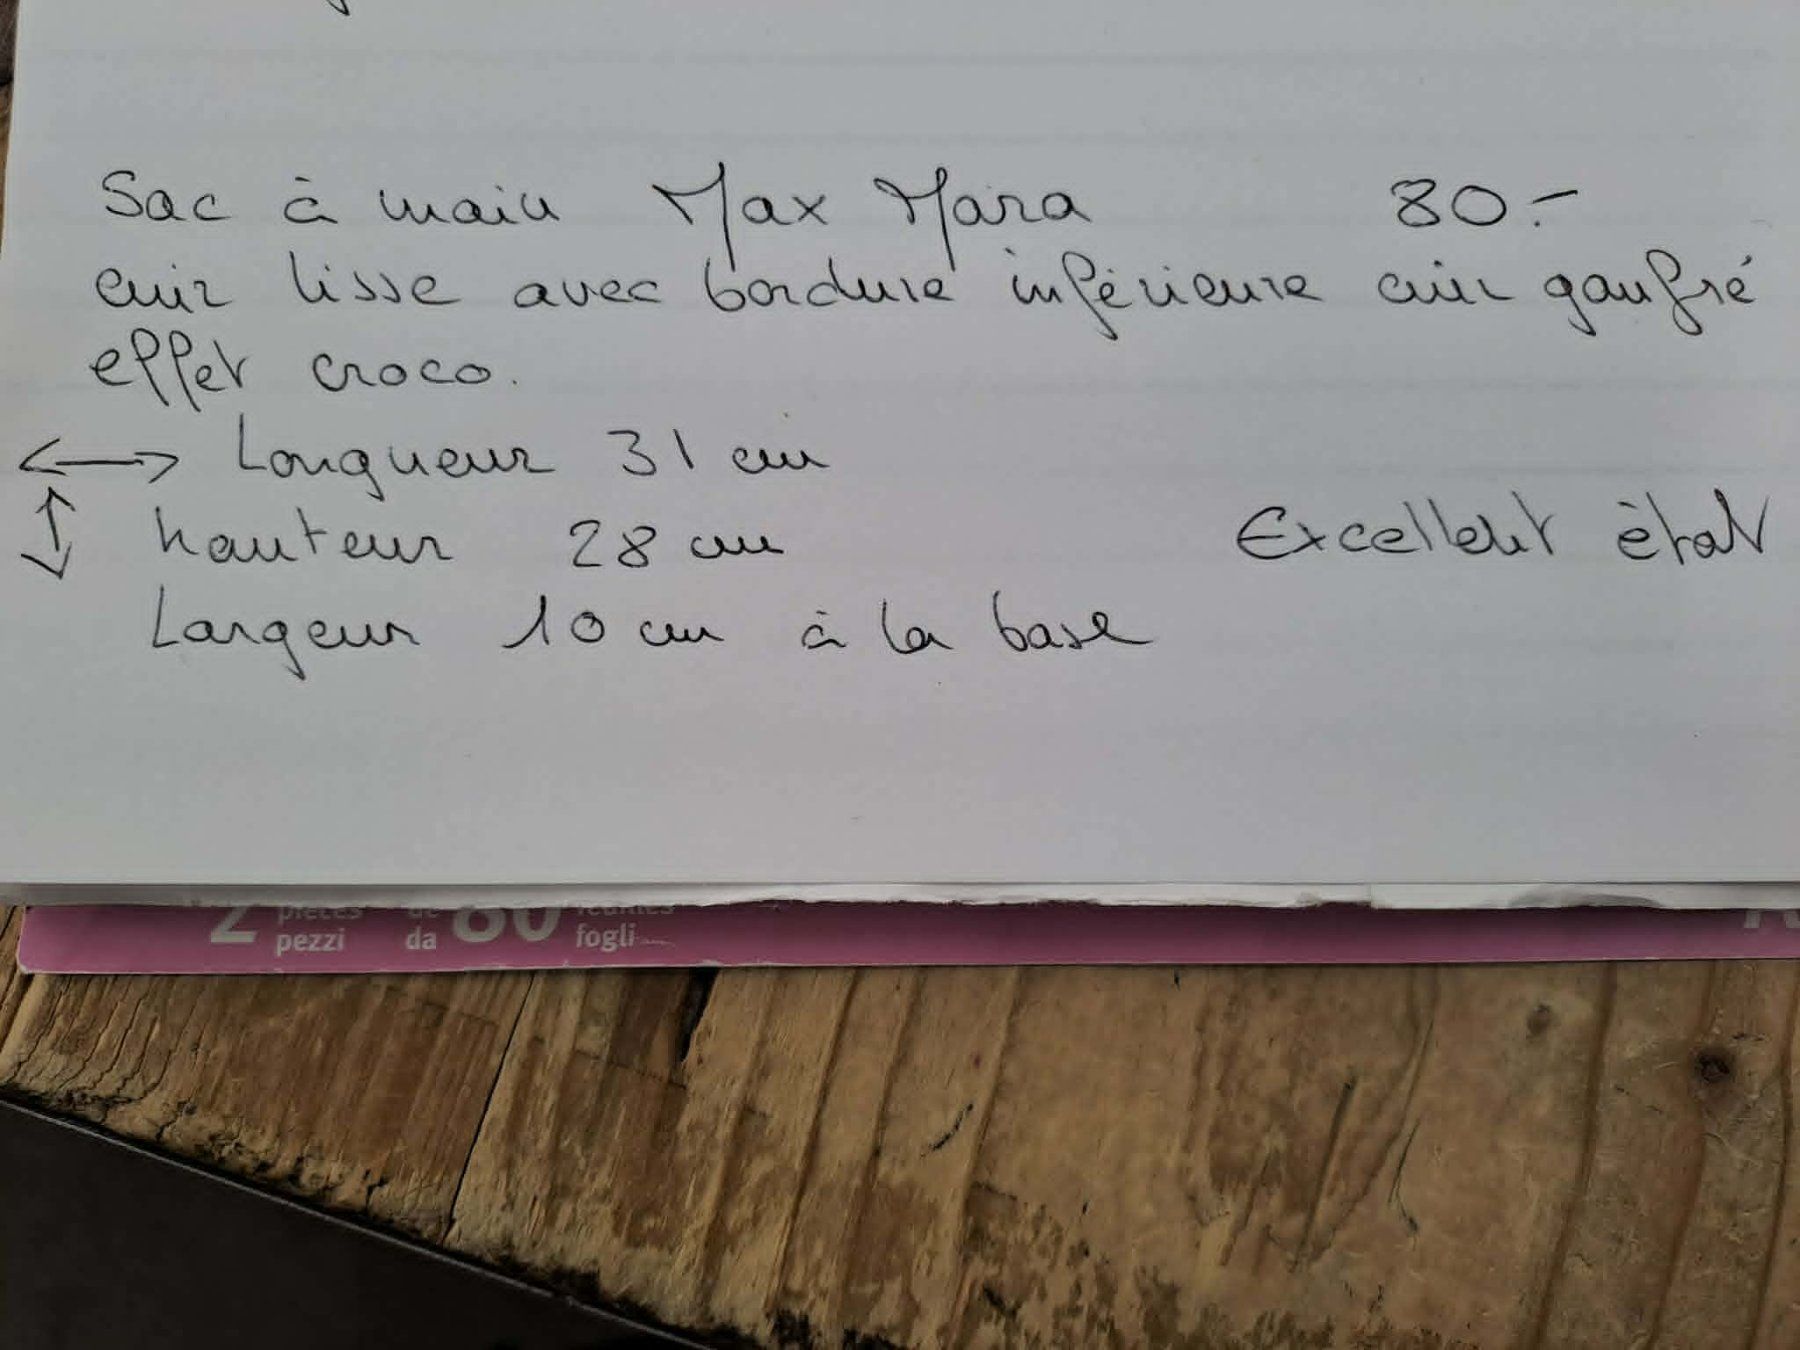 Sac à main Max Mara 80.-
cuir lisse avec bordure inférieure cuir gaufré
effet croco.
Longueur 31 cm
hauteur 28 cm
Excellent état
Largeur 10 cm à la base
2 pièces de 80 feuilles
pezzi da fogli